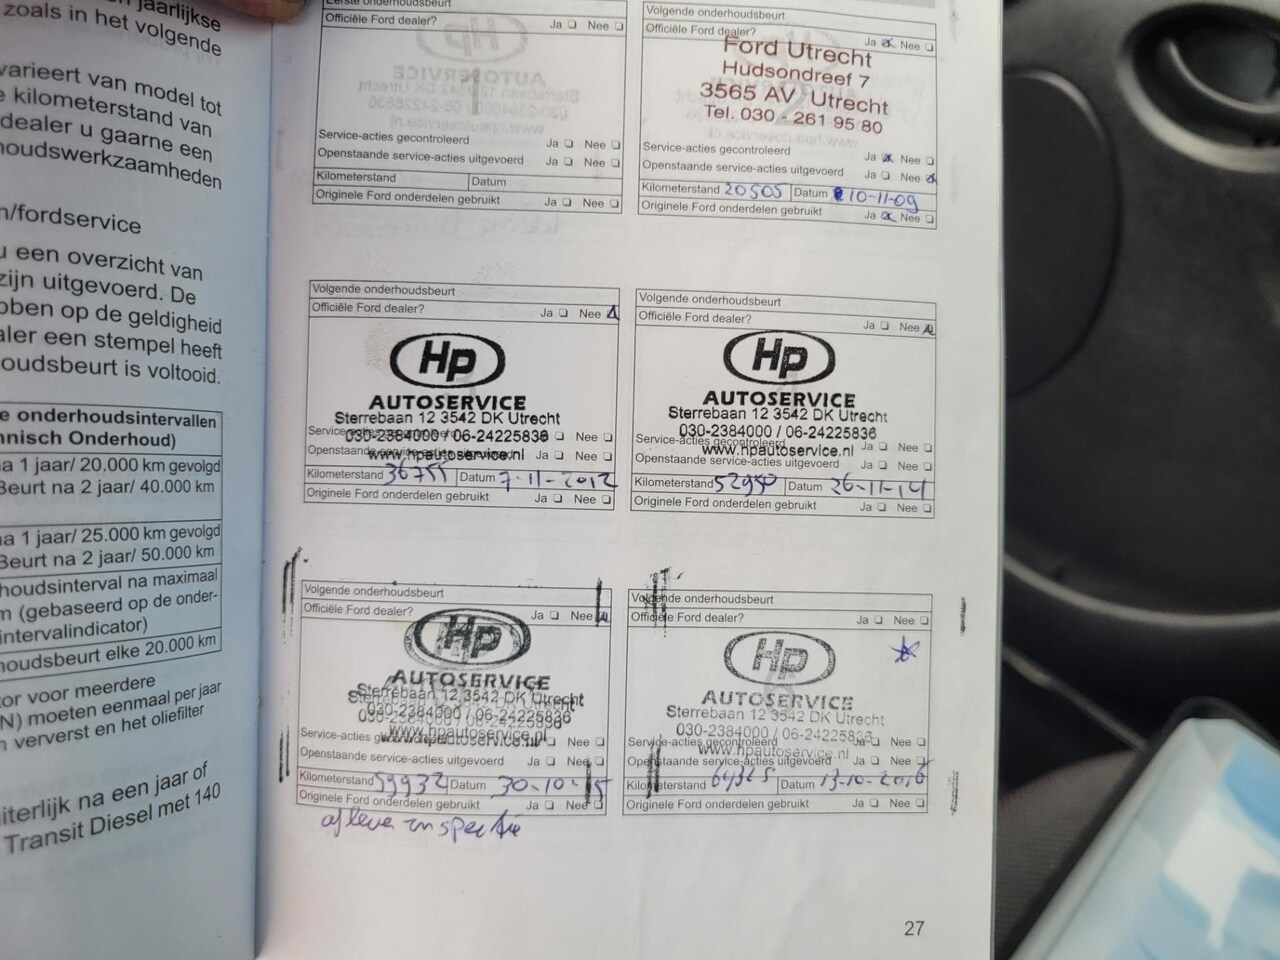 jaarlijkse
zoals in het volgende
varieert van model tot
kilometerstand van
dealer u gaarne een
houdswerkzaamheden
n/fordservice
u een overzicht van
zijn uitgevoerd. De
bben op de geldigheid
aler een stempel heeft
oudsbeurt is voltooid.
e onderhoudsintervallen
hnisch Onderhoud)
na 1 jaar/ 20.000 km gevolgd
Beurt na 2 jaar/ 40.000 km
na 1 jaar/ 25.000 km gevolgd
Beurt na 2 jaar/ 50.000 km
houdsinterval na maximaal
m (gebaseerd op de onder-
intervalindicator)
houdsbeurt elke 20.000 km
tor voor meerdere
N) moeten eenmaal per jaar
n ververst en het oliefilter
iterlijk na een jaar of
Transit Diesel met 140
Eerste onderhoudsbeurt
Officiële Ford dealer? Ja ❑ Nee ❑
Service-acties gecontroleerd Ja ❑ Nee ❑
Openstaande service-acties uitgevoerd Ja ❑ Nee ❑
Kilometerstand Datum
Originele Ford onderdelen gebruikt Ja ❑ Nee ❑
Volgende onderhoudsbeurt
Officiële Ford dealer? Ja ❑ Nee ❑
Ford Utrecht
Hudsondreef 7
3565 AV Utrecht
Tel. 030 - 261 95 80
Service-acties gecontroleerd Ja ❑ Nee ❑
Openstaande service-acties uitgevoerd Ja ❑ Nee ❑
Kilometerstand 20505 Datum 10-11-09
Originele Ford onderdelen gebruikt Ja ❑ Nee ❑
Volgende onderhoudsbeurt
Officiële Ford dealer? Ja ❑ Nee ❑
Hp
AUTOSERVICE
Sterrebaan 12 3542 DK Utrecht
030-2384000 / 06-24225836
Service-acties gecontroleerd Ja ❑ Nee ❑
www.hpautoservice.nl
Openstaande service-acties uitgevoerd Ja ❑ Nee ❑
Kilometerstand 36755 Datum 7-11-2012
Originele Ford onderdelen gebruikt Ja ❑ Nee ❑
Volgende onderhoudsbeurt
Officiële Ford dealer? Ja ❑ Nee ❑
Hp
AUTOSERVICE
Sterrebaan 12 3542 DK Utrecht
030-2384000 / 06-24225836
Service-acties gecontroleerd Ja ❑ Nee ❑
www.hpautoservice.nl
Openstaande service-acties uitgevoerd Ja ❑ Nee ❑
Kilometerstand 52950 Datum 26-11-14
Originele Ford onderdelen gebruikt Ja ❑ Nee ❑
Volgende onderhoudsbeurt
Officiële Ford dealer? Ja ❑ Nee ❑
Hp
AUTOSERVICE
Sterrebaan 12 3542 DK Utrecht
030-2384000 / 06-24225836
www.hpautoservice.nl
Service-acties gecontroleerd Ja ❑ Nee ❑
Openstaande service-acties uitgevoerd Ja ❑ Nee ❑
Kilometerstand 59932 Datum 30-10-15
Originele Ford onderdelen gebruikt Ja ❑ Nee ❑
aflever inspectie
Volgende onderhoudsbeurt
Officiële Ford dealer? Ja ❑ Nee ❑
Hp
AUTOSERVICE
Sterrebaan 12 3542 DK Utrecht
030-2384000 / 06-24225836
Service-acties gecontroleerd Ja ❑ Nee ❑
www.hpautoservice.nl
Openstaande service-acties uitgevoerd Ja ❑ Nee ❑
Kilometerstand 64325 Datum 13-10-2016
Originele Ford onderdelen gebruikt Ja ❑ Nee ❑
27